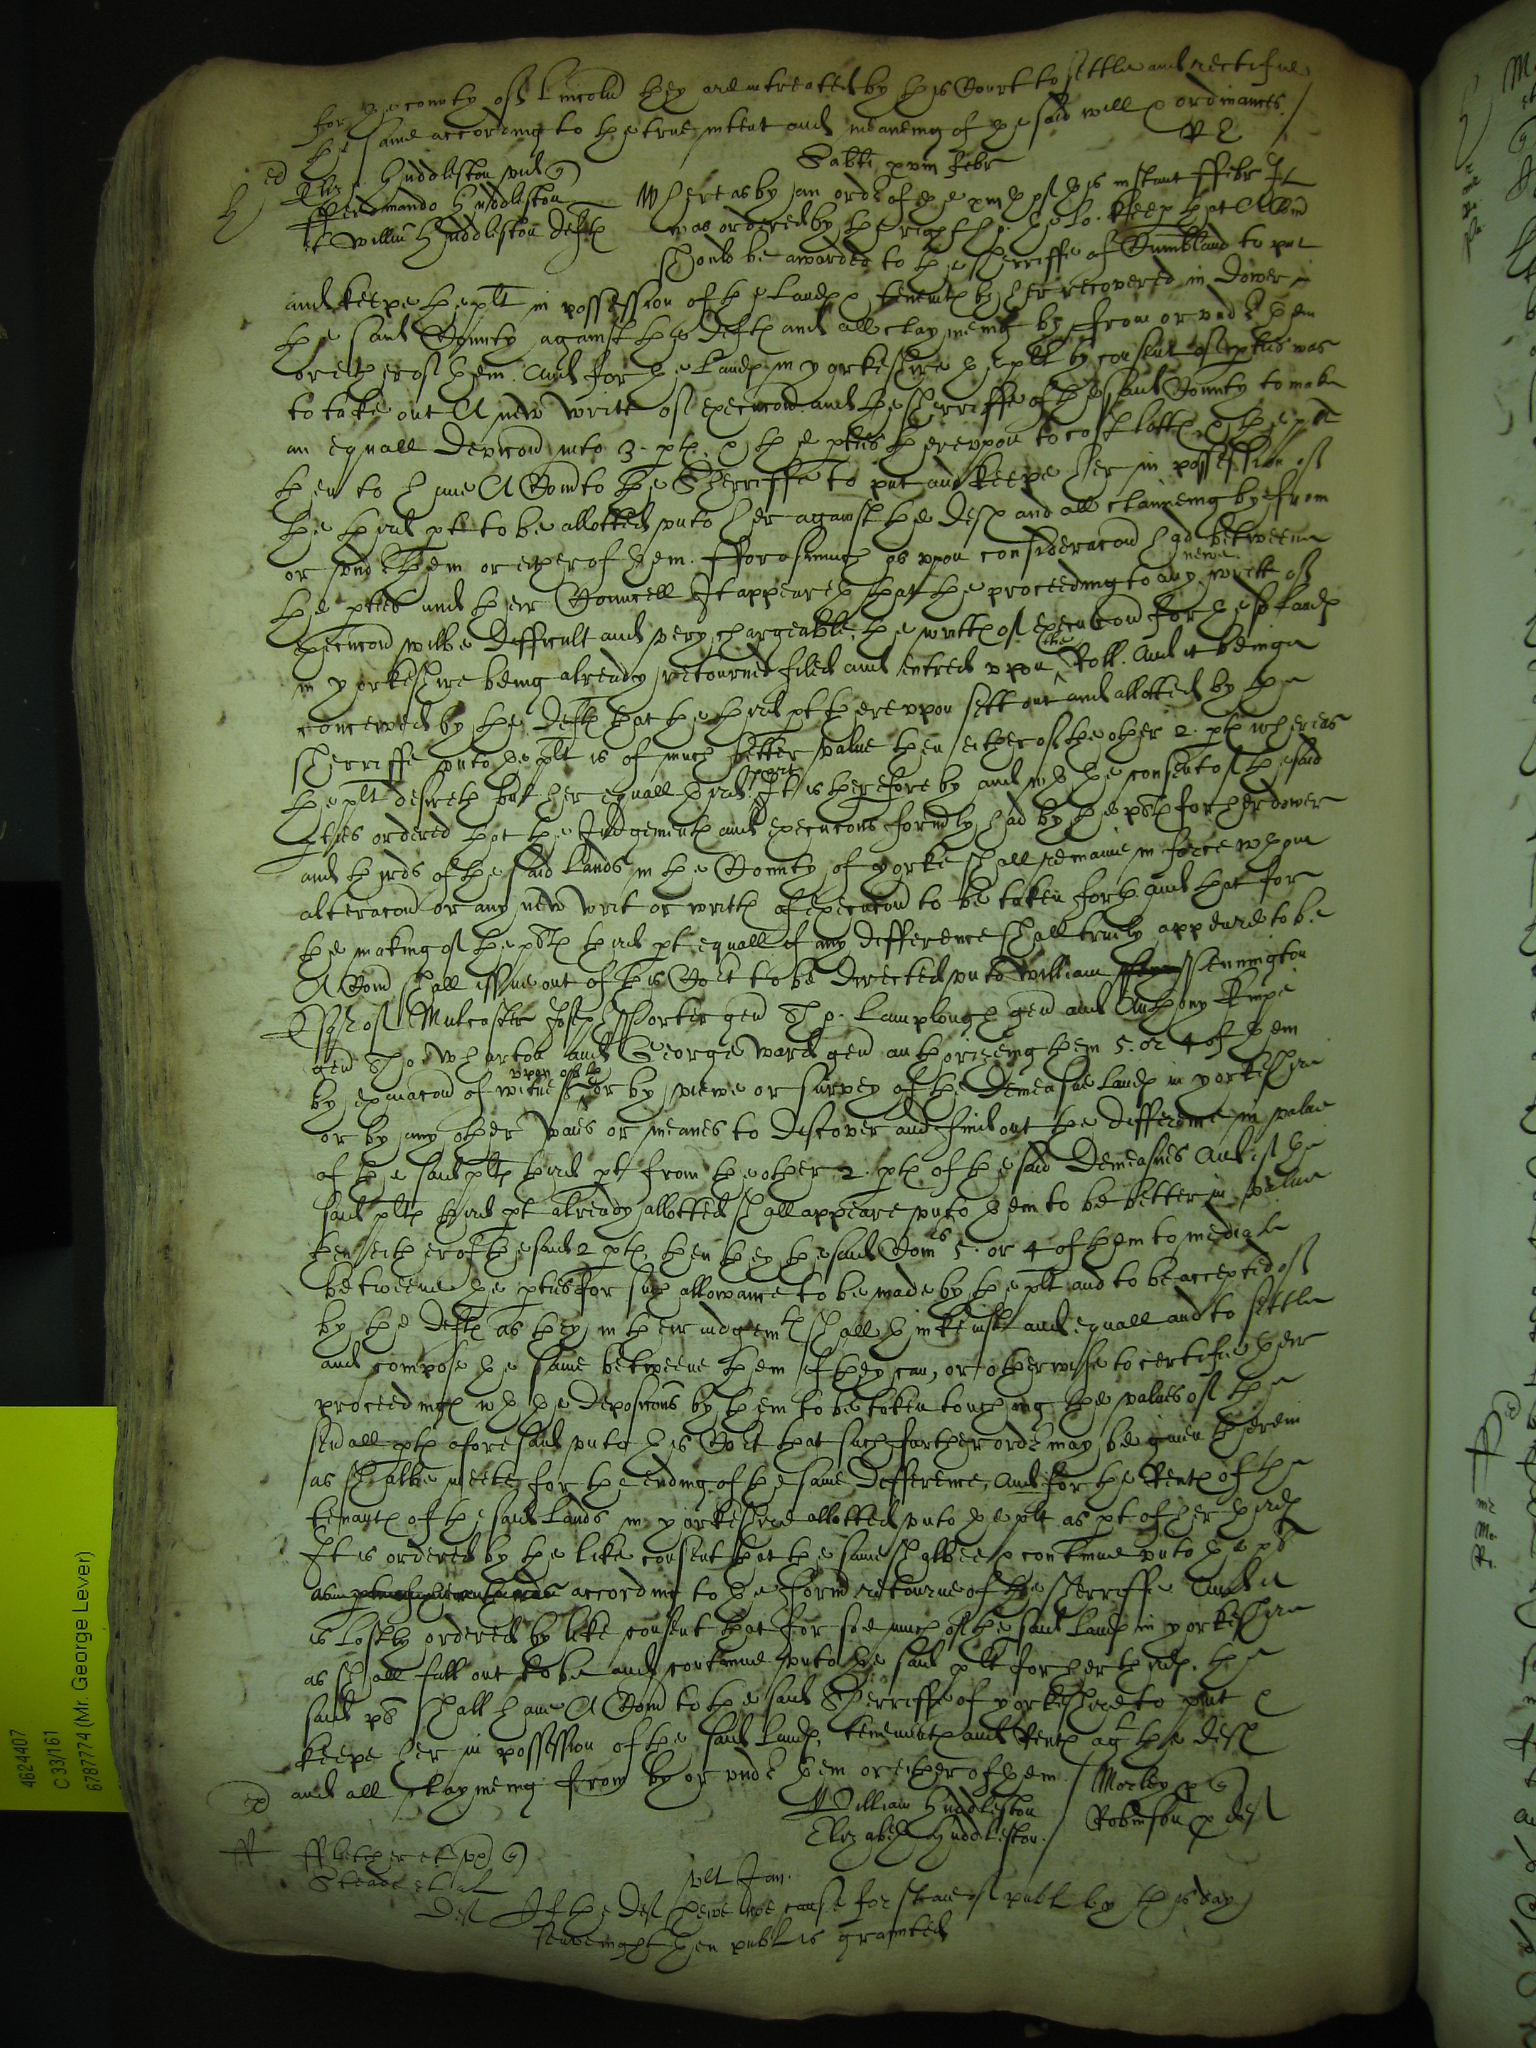 for the county of Lincoln they are intreated by this Court to settle and rectifie
the same according to the true intent and meaneing of the said will & ordinances
R L
Sabti xviii Febr
ed
H
Eliz: Huddleston vid q
Fferdinando Huddleston
et Willm Huddleston Deftes
Whereas by an order of the xiiith of this instant Ffebr It
was ordered by the right ho: the lo: Keep that A Com
should be awarded to the Sherriffe of Cumbland to put
and keepe the plt in possession of the landes & tenemtes by her recovered in Dower in
the said County against the Deftes and all claymeing by from or under them
or either of them. And for the landes in Yorkeshire the plt by consent of pties was
to take out A new write of execucon and the Sherriffe of the said County to make
an equall Devicon into 3. ptes & the pties thereupon to cast lottes & the plt
then to have A Com to the Sherriffe to put and keepe her in possession of
the third pt to be allotted unto her against the Deftes and all claimeing by from
or under them or either of them. Fforasmuch as upon consideracon had betweene
the pties and their Councell It appeareth that the proceeding to any newe writt of
execucon wilbe Difficult and very chargeable, the writtes of execucon for the sd landes
in Yorkeshire being already retourned filed and entred upon the Roll. And it being
conceived by the Deftes that the third pt thereupon sett out and allotted by the
Sherriffe unto the plt is of much better value then either of the other 2. ptes whereas
the plt desireth but her equall third part It is therefore by and with the consent of the said
pties ordered that the Judgementes and execucons formerly had by the plt for her dower
and thirds of the said lands in the County of Yorke shall remaine in force without
alteracon or any new writ or writtes of execucon to be taken forth. And that for
the making of the pltes third pt equall if any difference shall truely appeare to be
A Com shall issue out of this Cort to be directed unto William Pennington
Esqr of Mulcaster Joseph Porter gen Tho. Lamplough gen and Anthony
gen Tho: Wharton and George Ward gen authorizeing them 5. or 4 of them
by exaiacon of witnes upon oth or by viewe or survey of the Demeasne landes in Yorkeshire
or by any other waies or meanes to discover and find out the difference in value
of the said pltes third pt from the other 2. ptes of the said Demeasnes And if the
said pltes third pt already allotted shall appeare unto them to be better in value
then either of the said 2 ptes, then they the said Comrs 5. or 4 of them to mediate
betweene the pties for such allowance to be made by the plt and to be accepted of
by the Deftes as they in their iudgemtes shall thinke iust and equall and to settle
and compose the same betweene them if they can, or otherwise to certifie their
proceedinges with the deposicons by them to be taken touching the values of the
sevall ptes aforesaid unto this Cort that such further order may be given therein
as shalbe meete for the ending of the same difference, And for the Rentes of the
tenantes of the said lands in Yorkeshire allotted unto the plt as pt of her thirdes
It is ordered by the like consent that the same shalbee & continue unto the plt
according to the form retourne of the Sherriffe And it
is lastly ordered by like consent that for soe much of the said landes in Yorkeshire
as shall fall out to be and continue unto the said plt for her thirdes. the
said plt shall have A Com to the said Sherriffe of Yorkeshire to put &
keepe her in possession of the said landes, tenemtes and Rentes agt the Deftes
and all claymeing from by or under them or either of them.
William Huddleston
Elizabeth Huddleston.
Morley p q
Robinson p def
ex
ff
Ffletcher et ux q
Steade et al
Def
ult Jan.
If the Def shewe noe cause for staie of publ by this day
sevenight then publ is graunted
4624407
C 33/161
6787774 (Mr. George Lever)